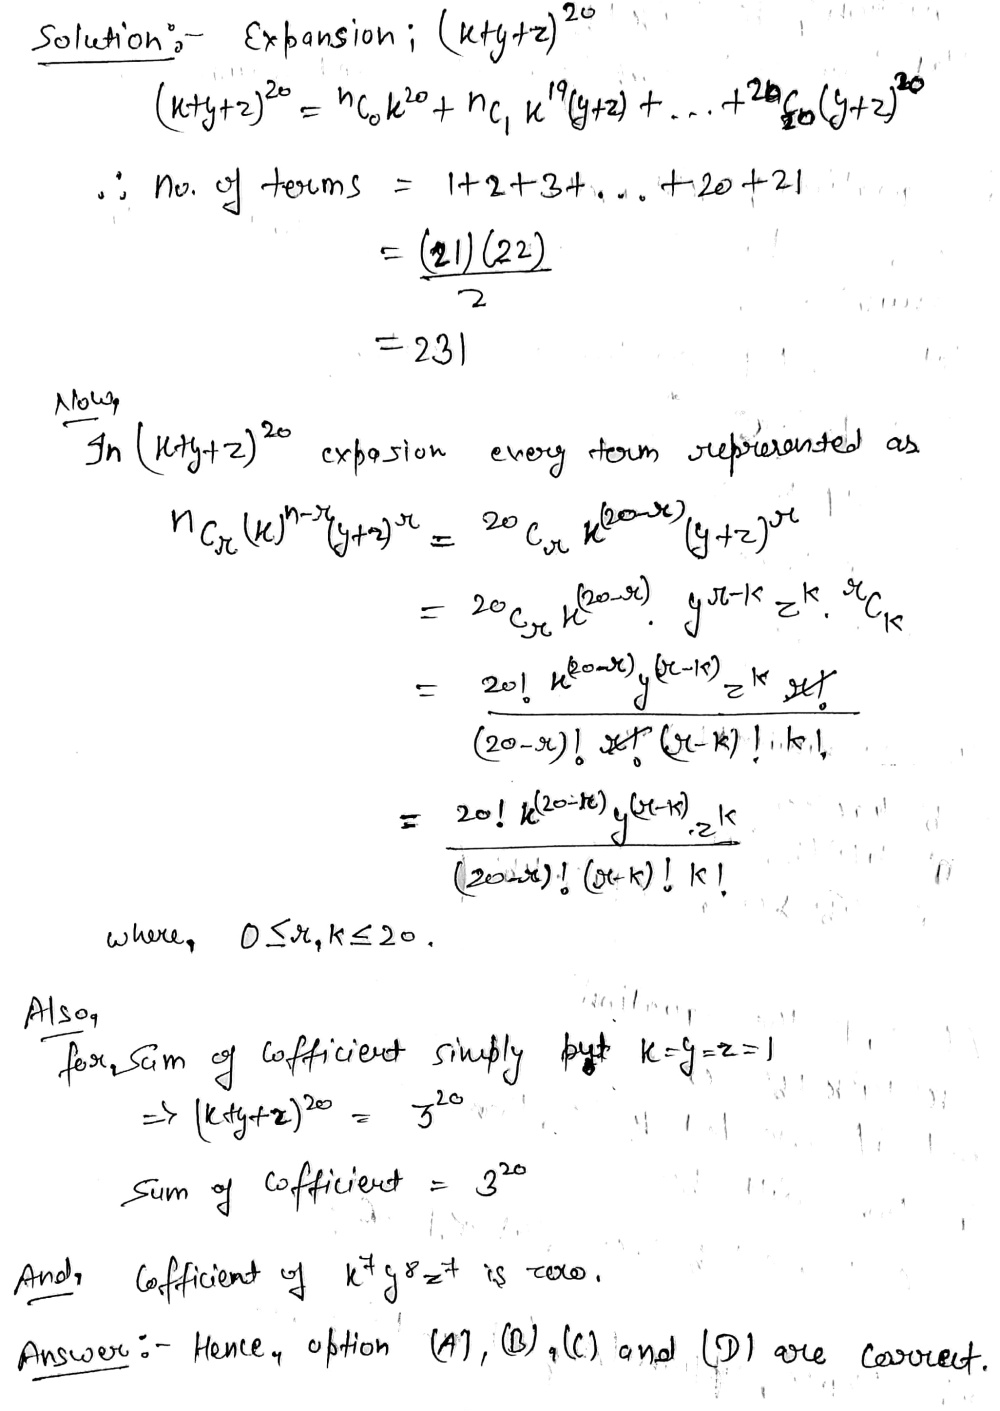 Solution:- Expansion; (x+y+z)^20
(x+y+z)^20 = nC₀x^20 + nC₁ x^19(y+z) + ... + 20C₂₀(y+z)^20
∴ no. of terms = 1+2+3+... +20+21
= (21)(22)
2
= 231
Now,
In (x+y+z)^20 expasion every term represented as
nCr(x)^n-r(y+z)^r = 20Cr x^(20-r)(y+z)^r
= 20Cr x^(20-r). y^r-k z^k. rCk
= 20! x^(20-r) y^(r-k) z^k r!
(20-r)! r! (r-k)! . k!
= 20! x^(20-r) y^(r-k).z^k
(20-r)! (r-k)! k!
where, 0≤r,k≤20.
Also,
for, sum of cofficient simply put x=y=z=1
=> (x+y+z)^20 = 3^20
Sum of cofficient = 3^20
And, Cofficient of x^7 y^8 z^7 is zero.
Answer:- Hence, option (A), (B), (C) and (D) are correct.